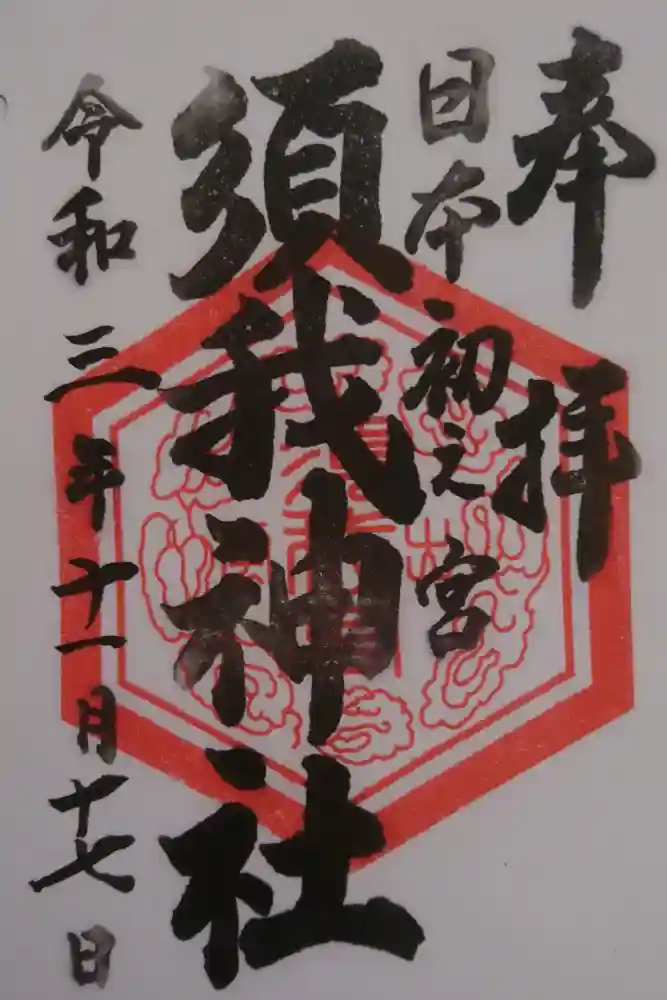 奉拝
日本初之宮
須我神社
令和三年十一月十七日